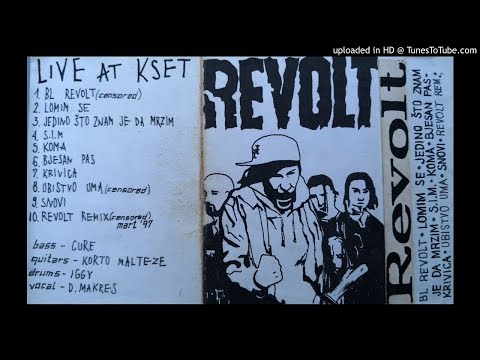 uploaded in HD @ TunesToTube.com
LIVE AT KSET
1. BL REVOLT (censored)
2. LOMIM SE
3. JEDINO ŠTO ZNAM JE DA MRZIM
4. S.I.M
5. KOMA
6. BJESAN PAS
7. KRIVICA
8. UBISTVO UMA (censored)
9. SNOVI
10. REVOLT REMIX (censored)
mart '97
bass - CURE
guitars - KORTO MALTEZE
drums - IGGY
vocal - D. MAKRES
REVOLT
Revolt
BL REVOLT • LOMIM SE • JEDINO ŠTO ZNAM
JE DA MRZIM • S.I.M. • KOMA • BJESAN PAS •
KRIVICA • UBISTVO UMA • SNOVI • REVOLT REM,